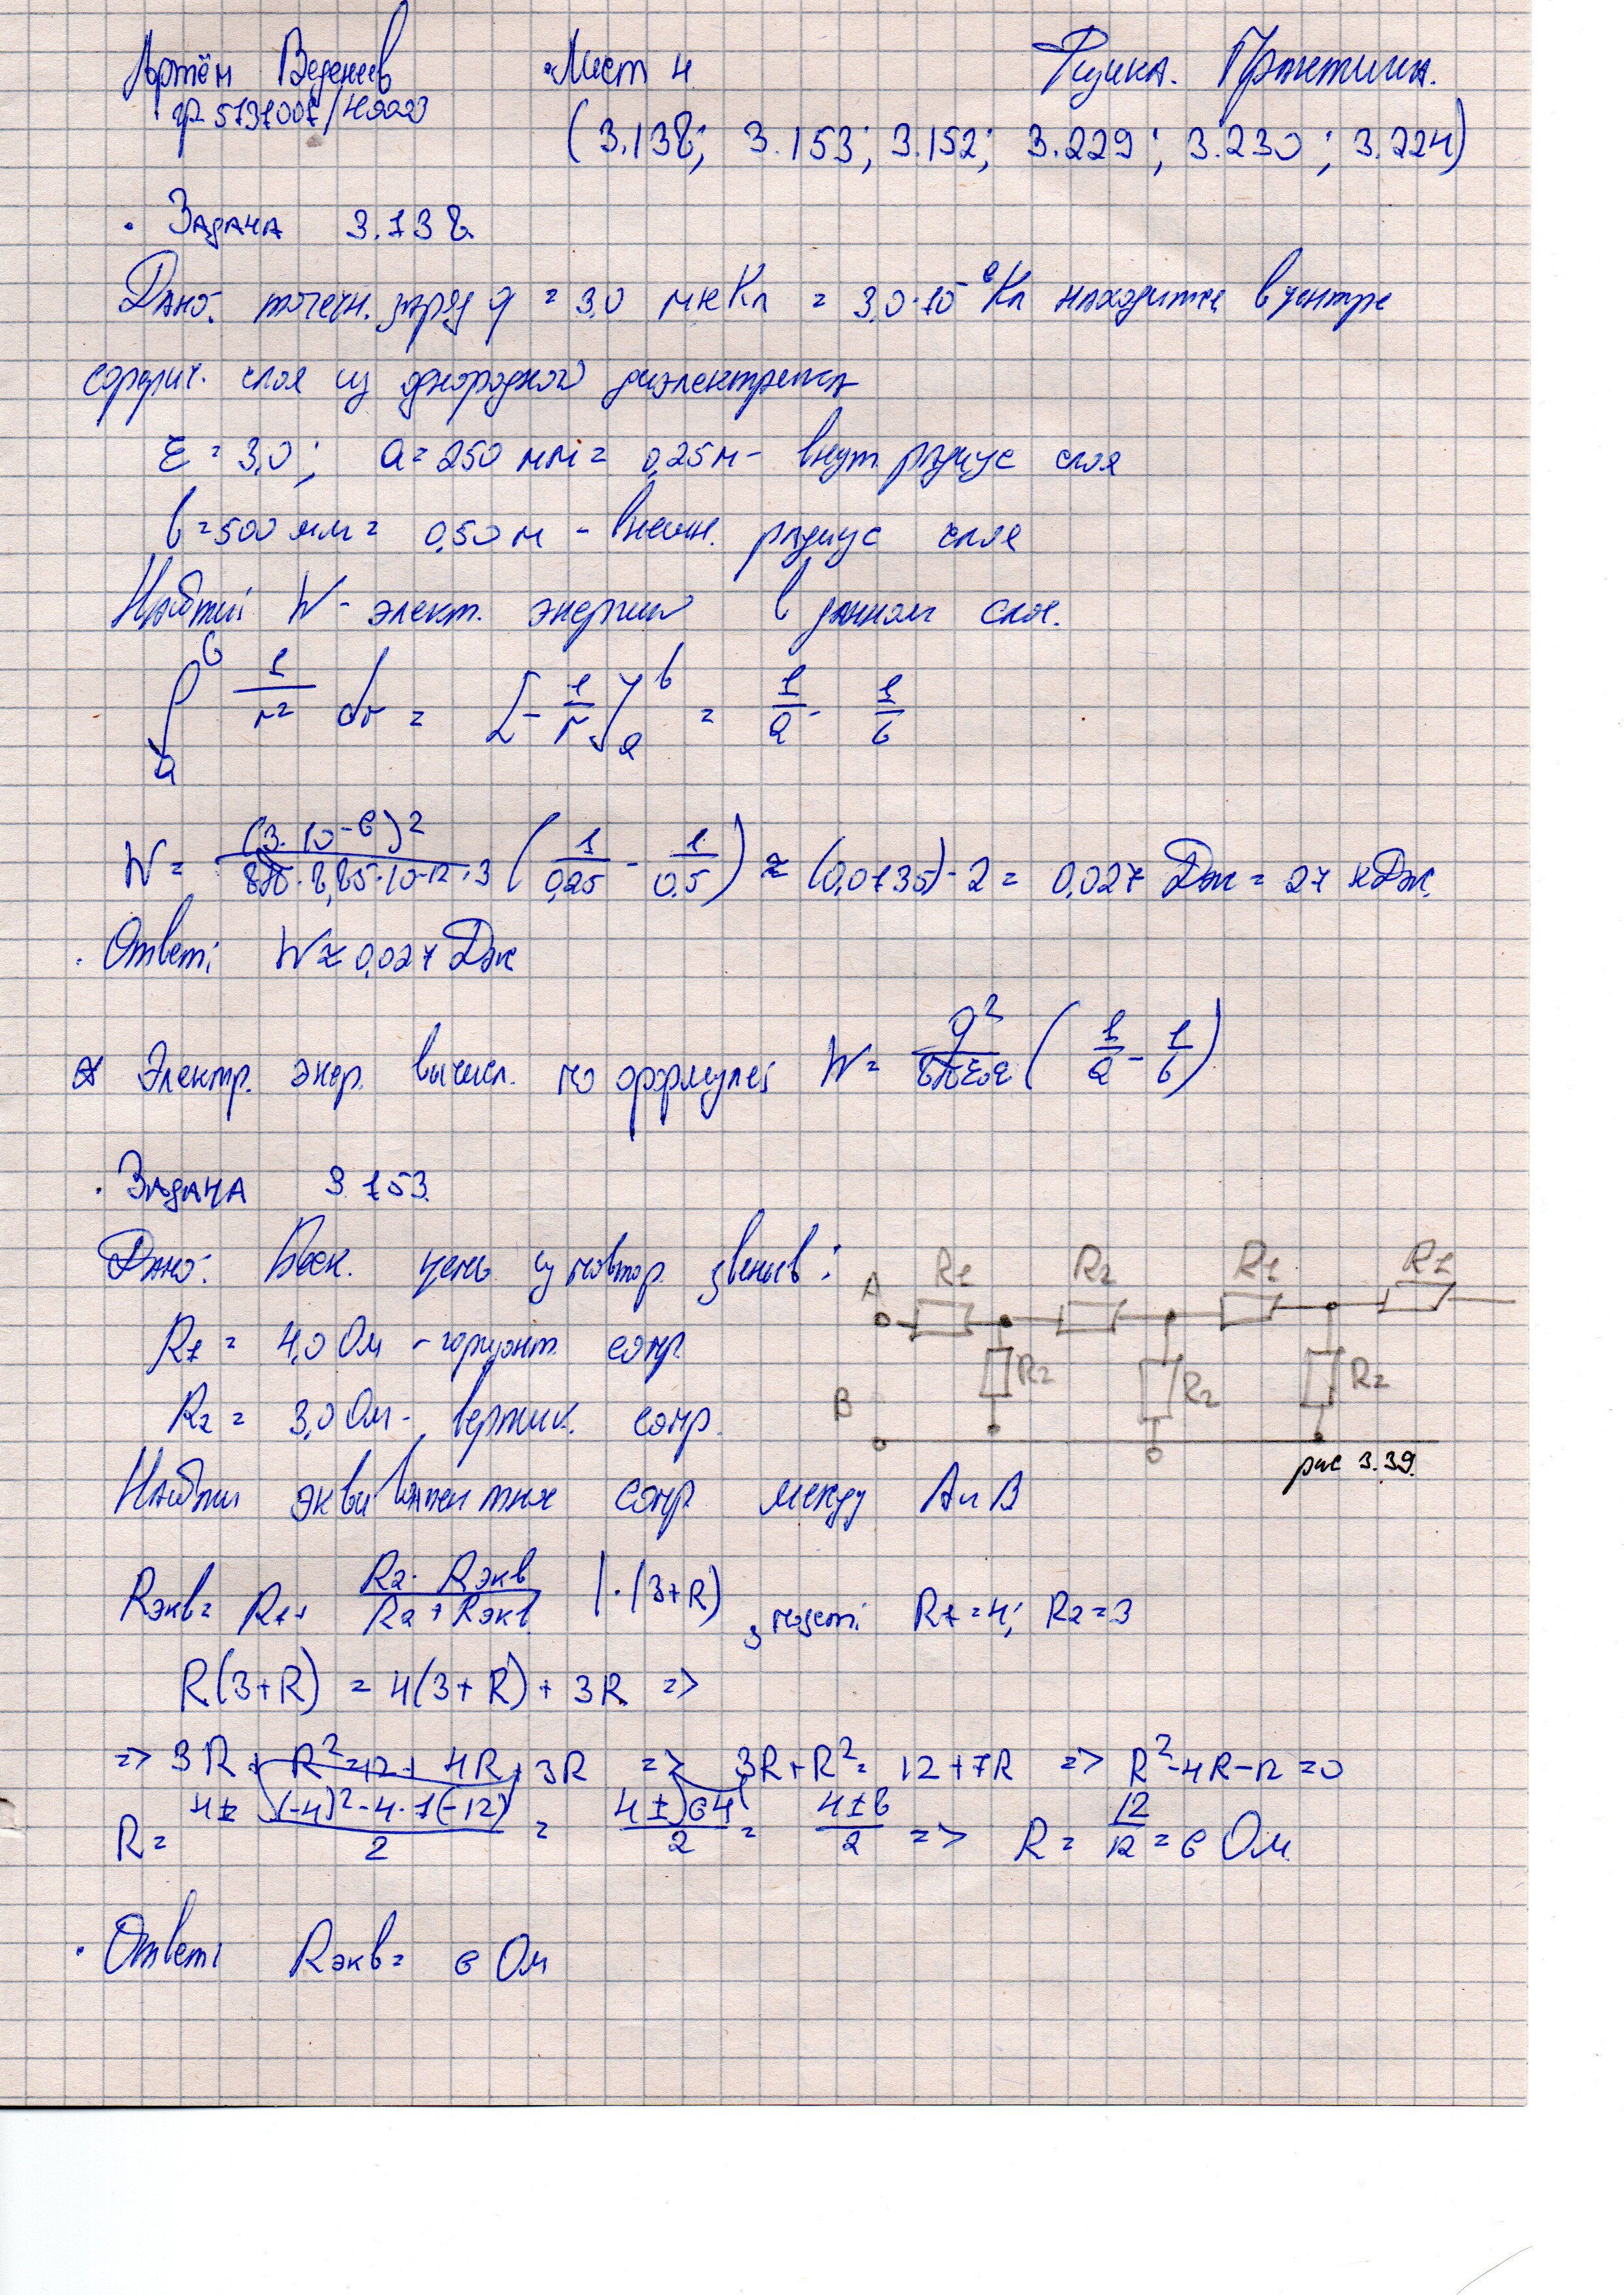 Артём Веденеев Лист 4 Физика. Практика.
гр. 5131001/40003
(3.138; 3.153; 3.152; 3.229; 3.230; 3.224)
· Задача 3.138
Дано: точечн. заряд q = 3,0 мкКл = 3,0·10⁻⁶ Кл находится в центре
сферич. слоя из однородного диэлектрика
ε = 3,0; a = 250 мм = 0,25 м - внут. радиус слоя
b = 500 мм = 0,50 м - внешн. радиус слоя
Найти W - элект. энергию в данном слое.
∫ₐᵇ 1/r² dr = [-1/r]ₐᵇ = 1/a - 1/b
W = (3·10⁻⁶)²/(8π·8,85·10⁻¹²·3) (1/0,25 - 1/0,5) ≈ (0,0135)·2 = 0,027 Дж = 27 мДж.
· Ответ: W ≈ 0,027 Дж
* Электр. энер. вычисл. по формуле: W = q²/(8πε₀ε) (1/a - 1/b)
· Задача 3.153.
Дано: Беск. цепь из повтор. звеньев:
R1 = 4,0 Ом - горизонт. сопр.
R2 = 3,0 Ом - вертик. сопр.
A R1 R2 R1 R1
R2 R2 R2
B
рис 3.39.
Найти эквивалентное сопр между A и B
Rэкв = R1 + R2·Rэкв/(R2+Rэкв) |·(3+R) , R1 = 4; R2 = 3
R(3+R) = 4(3+R) + 3R =>
=> 3R + R² = 12 + 4R + 3R => 3R + R² = 12 + 7R => R² - 4R - 12 = 0
R = (4 ± √((-4)² - 4·1(-12)))/2 = (4 ± √64)/2 = (4 ± 8)/2 => R = 12/12 = 6 Ом.
· Ответ: Rэкв = 6 Ом